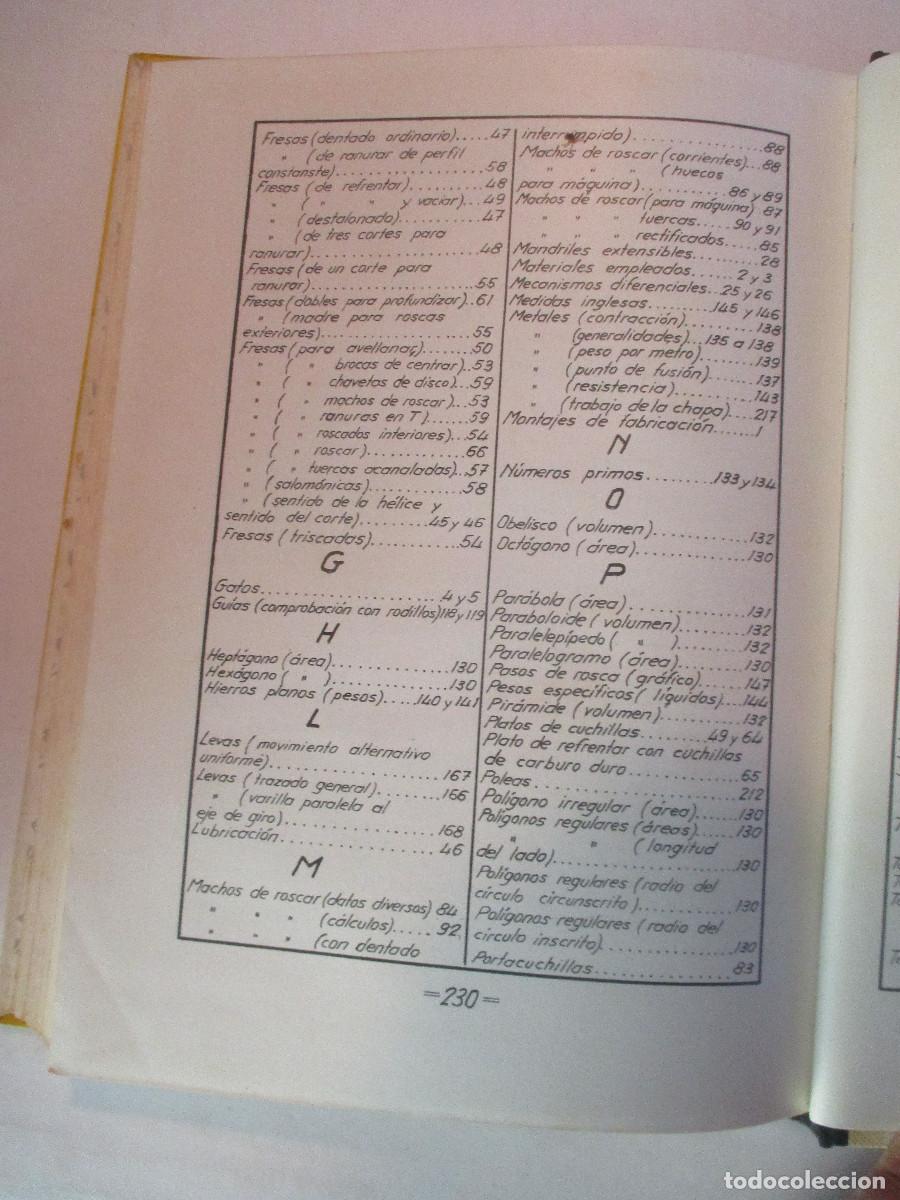 Fresas (dentado ordinario).....47
" (de ranurar de perfil
constanste)...................58
Fresas (de refrentar)..........48
" ( " " y vaciar)...49
" (destalonado)...........47
" (de tres cortes para
ranurar)......................48
Fresas (de un corte para
ranurar)......................55
Fresas (dobles para profundizar)..61
" (madre para roscas
exteriores)...................55
Fresas (para avellanaç)........50
" ( " brocas de centrar)..53
" ( " chavetas de disco)...59
" ( " machos de roscar)...53
" ( " ranuras en T).....59
" ( " roscados interiores)...54
" ( " roscar)............66
" ( " tuercas acanaladas)..57
" (salomónicas).............58
" (sentido de la hélice y
sentido del corte)........45 y 46
Fresas (triscadas)..........54
G
Gatos....................4 y 5
Guías (comprobación con rodillos)118 y 119
H
Heptágono (área)............130
Hexágono ( " )............130
Hierros planos (pesos)....140 y 141
L
Levas (movimiento alternativo
uniforme)...................167
Levas (trazado general).......166
" (varilla paralela al
eje de giro)................168
Lubricación.................46
M
Machos de roscar (datos diversos) 84
" " " (cálculos).....92
" " " (con dentado
interrumpido)................88
Machos de roscar (corrientes)...88
" " " (huecos
para máquina)..........86 y 89
Machos de roscar (para máquina) 87
" " " tuercas....90 y 91
" " " rectificados....85
Mandriles extensibles.........28
Materiales empleados......2 y 3
Mecanismos diferenciales..25 y 26
Medidas inglesas.......145 y 146
Metales (contracción).........138
" (generalidades)...135 a 138
" (peso por metro).......139
" (punto de fusión)......137
" (resistencia)..........143
" (trabajo de la chapa)....217
Montajes de fabricación.......1
N
Números primos........133 y 134
O
Obelisco (volumen)...........132
Octógono (área).............130
P
Parábola (área).............131
Paraboloide (volumen)........132
Paralelepípedo ( " )........132
Paralelogramo (área).........130
Pasos de rosca (gráfico).....147
Pesos específicos (líquidos)...144
Pirámide (volumen)..........132
Platos de cuchillas.......49 y 64
Plato de refrentar con cuchillas
de carburo duro..............65
Poleas.....................212
Polígono irregular (área).....130
Polígonos regulares (áreas)....130
" " (longitud
del lado)...................130
Polígonos regulares (radio del
círculo circunscrito)........130
Polígonos regulares (radio del
circulo inscrito)............130
Portacuchillas..............83
=230=
todocoleccion